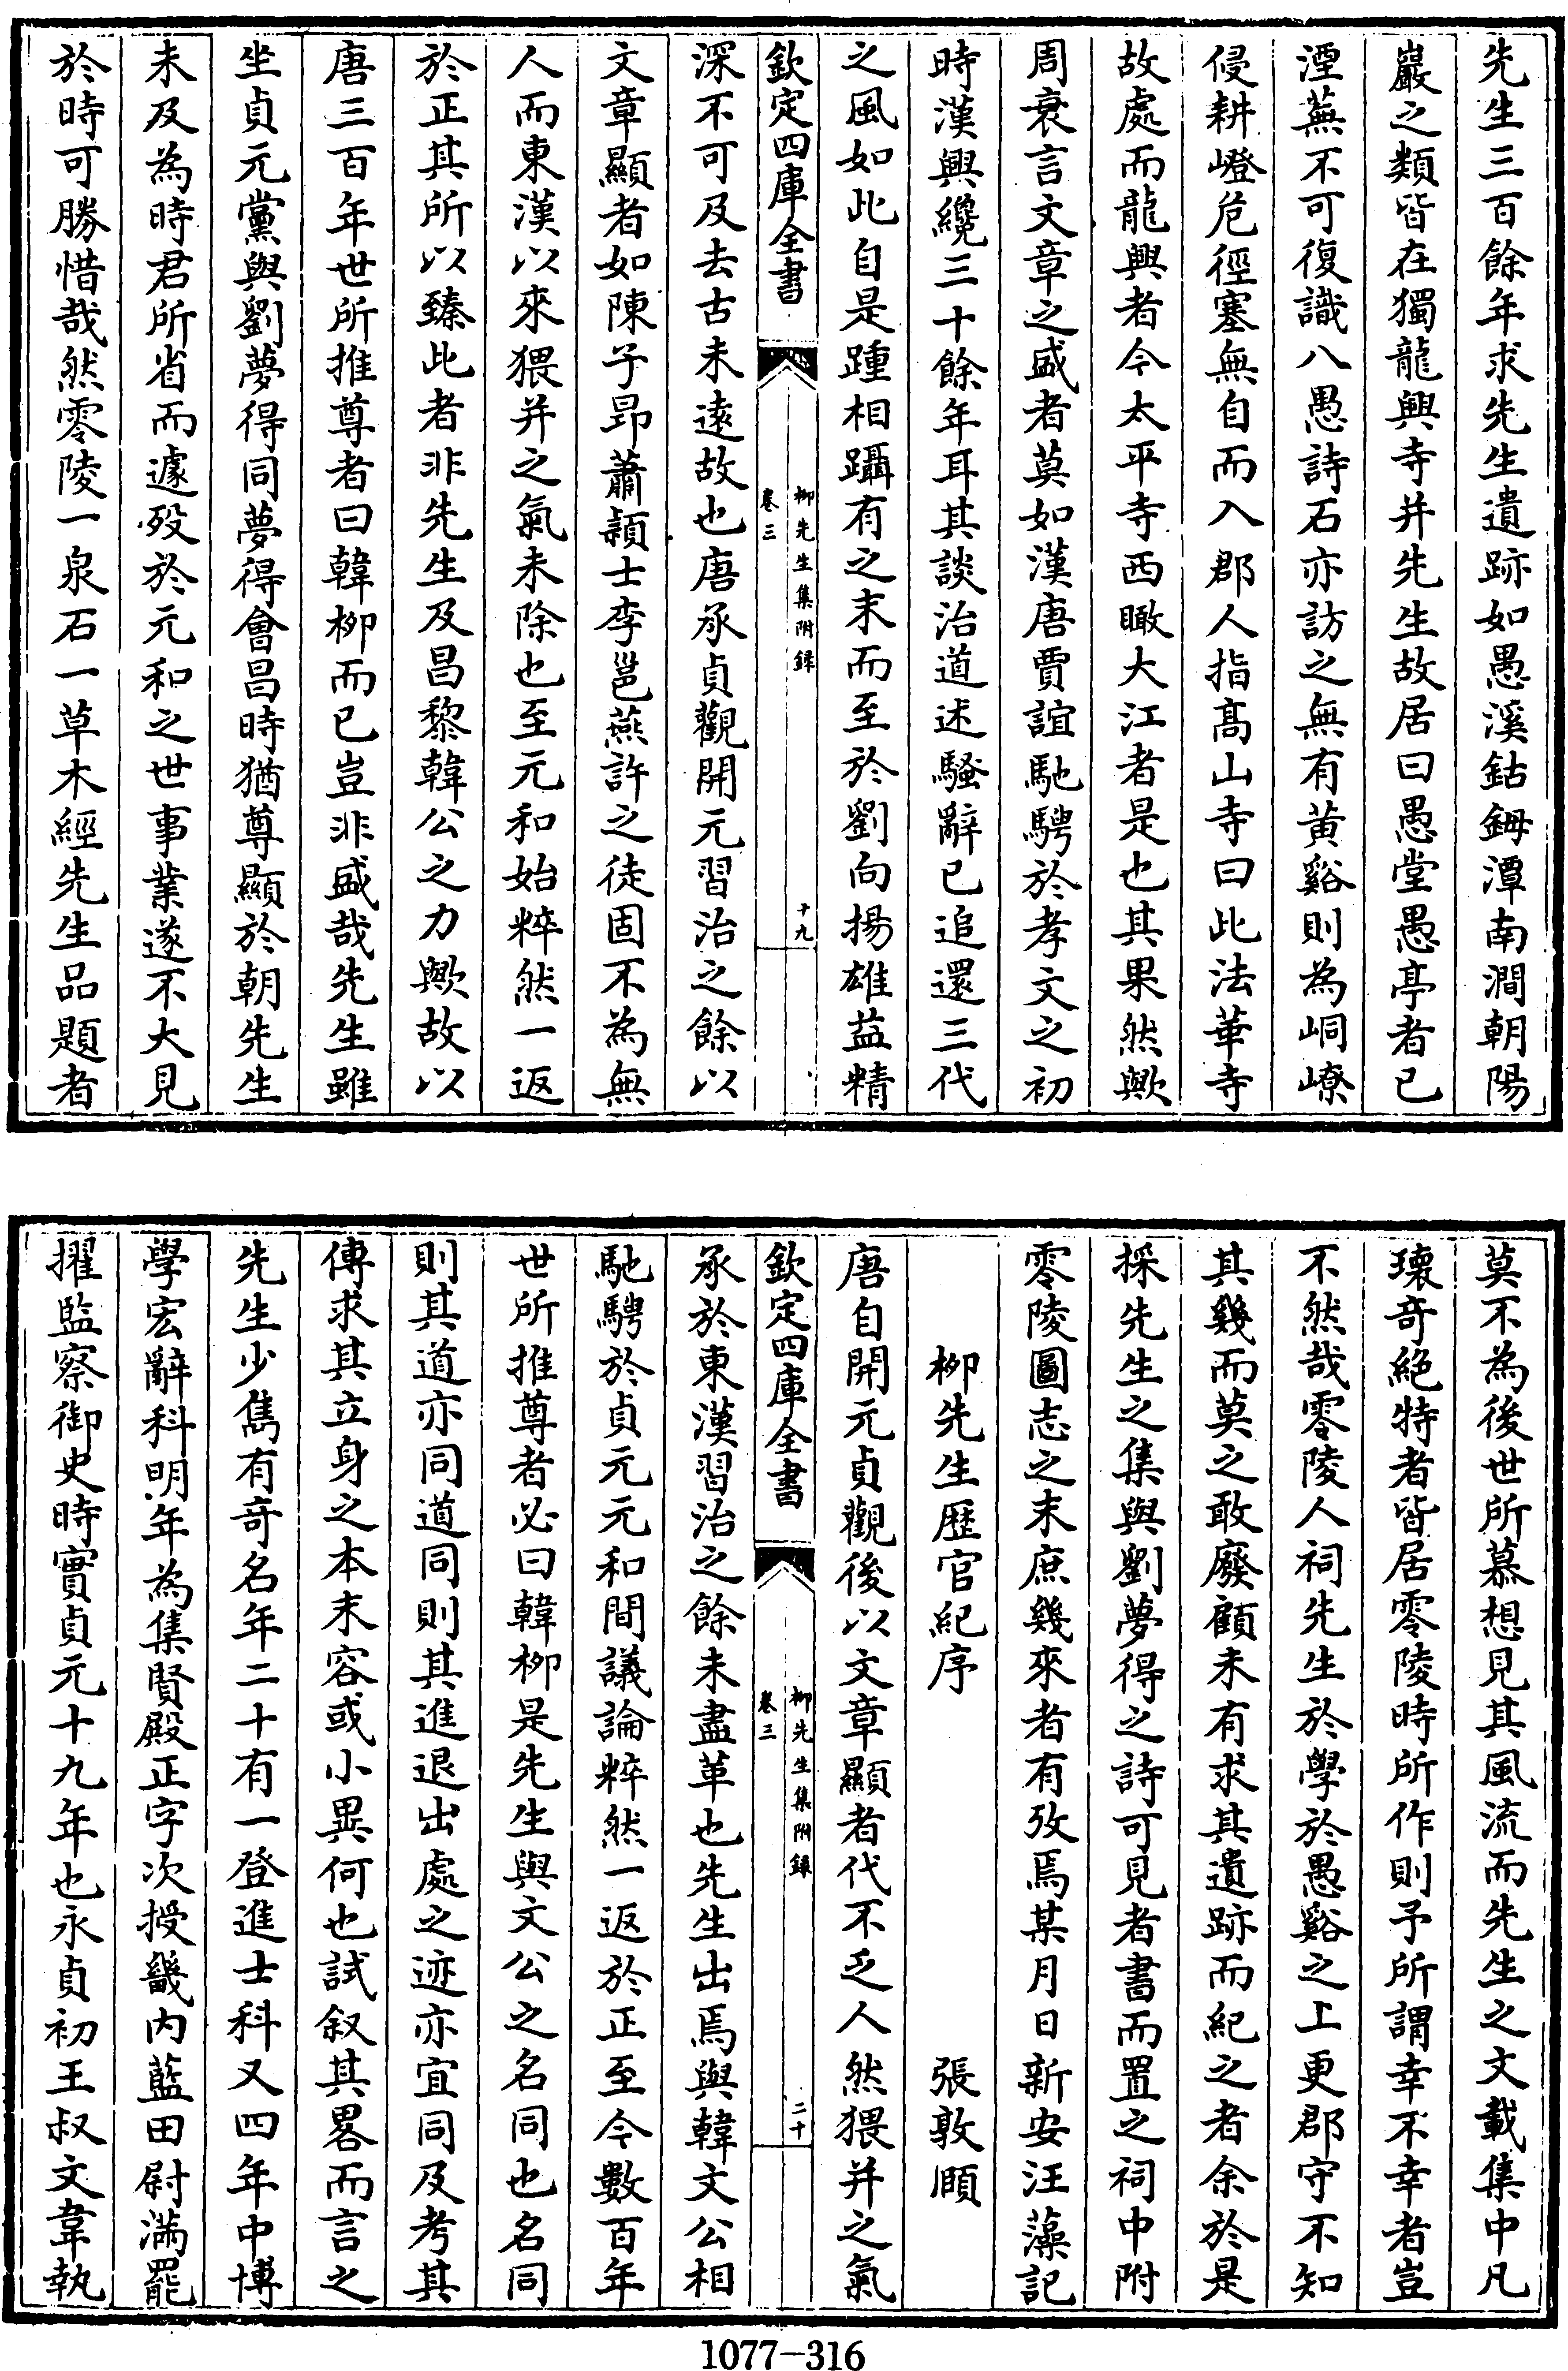 先生三百餘年求先生遺跡如愚溪鈷鉧潭南澗朝陽
巖之類皆在獨龍興寺并先生故居曰愚堂愚亭者已
湮蕪不可復識八愚詩石亦訪之無有黄谿則為峒獠
侵耕嶝危徑塞無自而入郡人指髙山寺曰此法華寺
故處而龍興者今太平寺西瞰大江者是也其果然歟
周衰言文章之盛者莫如漢唐賈誼馳騁於孝文之初
時漢興纔三十餘年耳其談治道述騷辭已追還三代
之風如此自是踵相躡有之末而至於劉向揚雄益精
欽定四庫全書
柳先生集附録
卷三
十九
深不可及去古未逺故也唐承貞觀開元習治之餘以
文章顯者如陳子昻蕭穎士李邕燕許之徒固不為無
人而東漢以來猥并之氣未除也至元和始粹然一返
於正其所以臻此者非先生及昌黎韓公之力歟故以
唐三百年世所推尊者曰韓柳而已豈非盛哉先生雖
坐貞元黨與劉夢得同夢得㑹昌時猶尊顯於朝先生
未及為時君所省而遽歿於元和之世事業遂不大見
於時可勝惜哉然零陵一泉石一草木經先生品題者
莫不為後世所慕想見其風流而先生之文載集中凡
瓌奇絶特者皆居零陵時所作則予所謂幸不幸者豈
不然哉零陵人祠先生於學於愚谿之上更郡守不知
其幾而莫之敢廢顧未有求其遺跡而紀之者余於是
採先生之集與劉夢得之詩可見者書而置之祠中附
零陵圖志之末庶幾來者有攷焉某月日新安汪藻記
柳先生歴官紀序
張敦頤
唐自開元貞觀後以文章顯者代不乏人然猥并之氣
欽定四庫全書
柳先生集附録
卷三
二十
承於東漢習治之餘未盡革也先生出焉與韓文公相
馳騁於貞元元和間議論粹然一返於正至今數百年
世所推尊者必曰韓柳是先生與文公之名同也名同
則其道亦同道同則其進退出處之迹亦宜同及考其
傳求其立身之本末容或小異何也試叙其畧而言之
先生少雋有奇名年二十有一登進士科又四年中博
學宏辭科明年為集賢殿正字次授畿内藍田尉滿罷
擢監察御史時實貞元十九年也永貞初王叔文韋執
1077—316